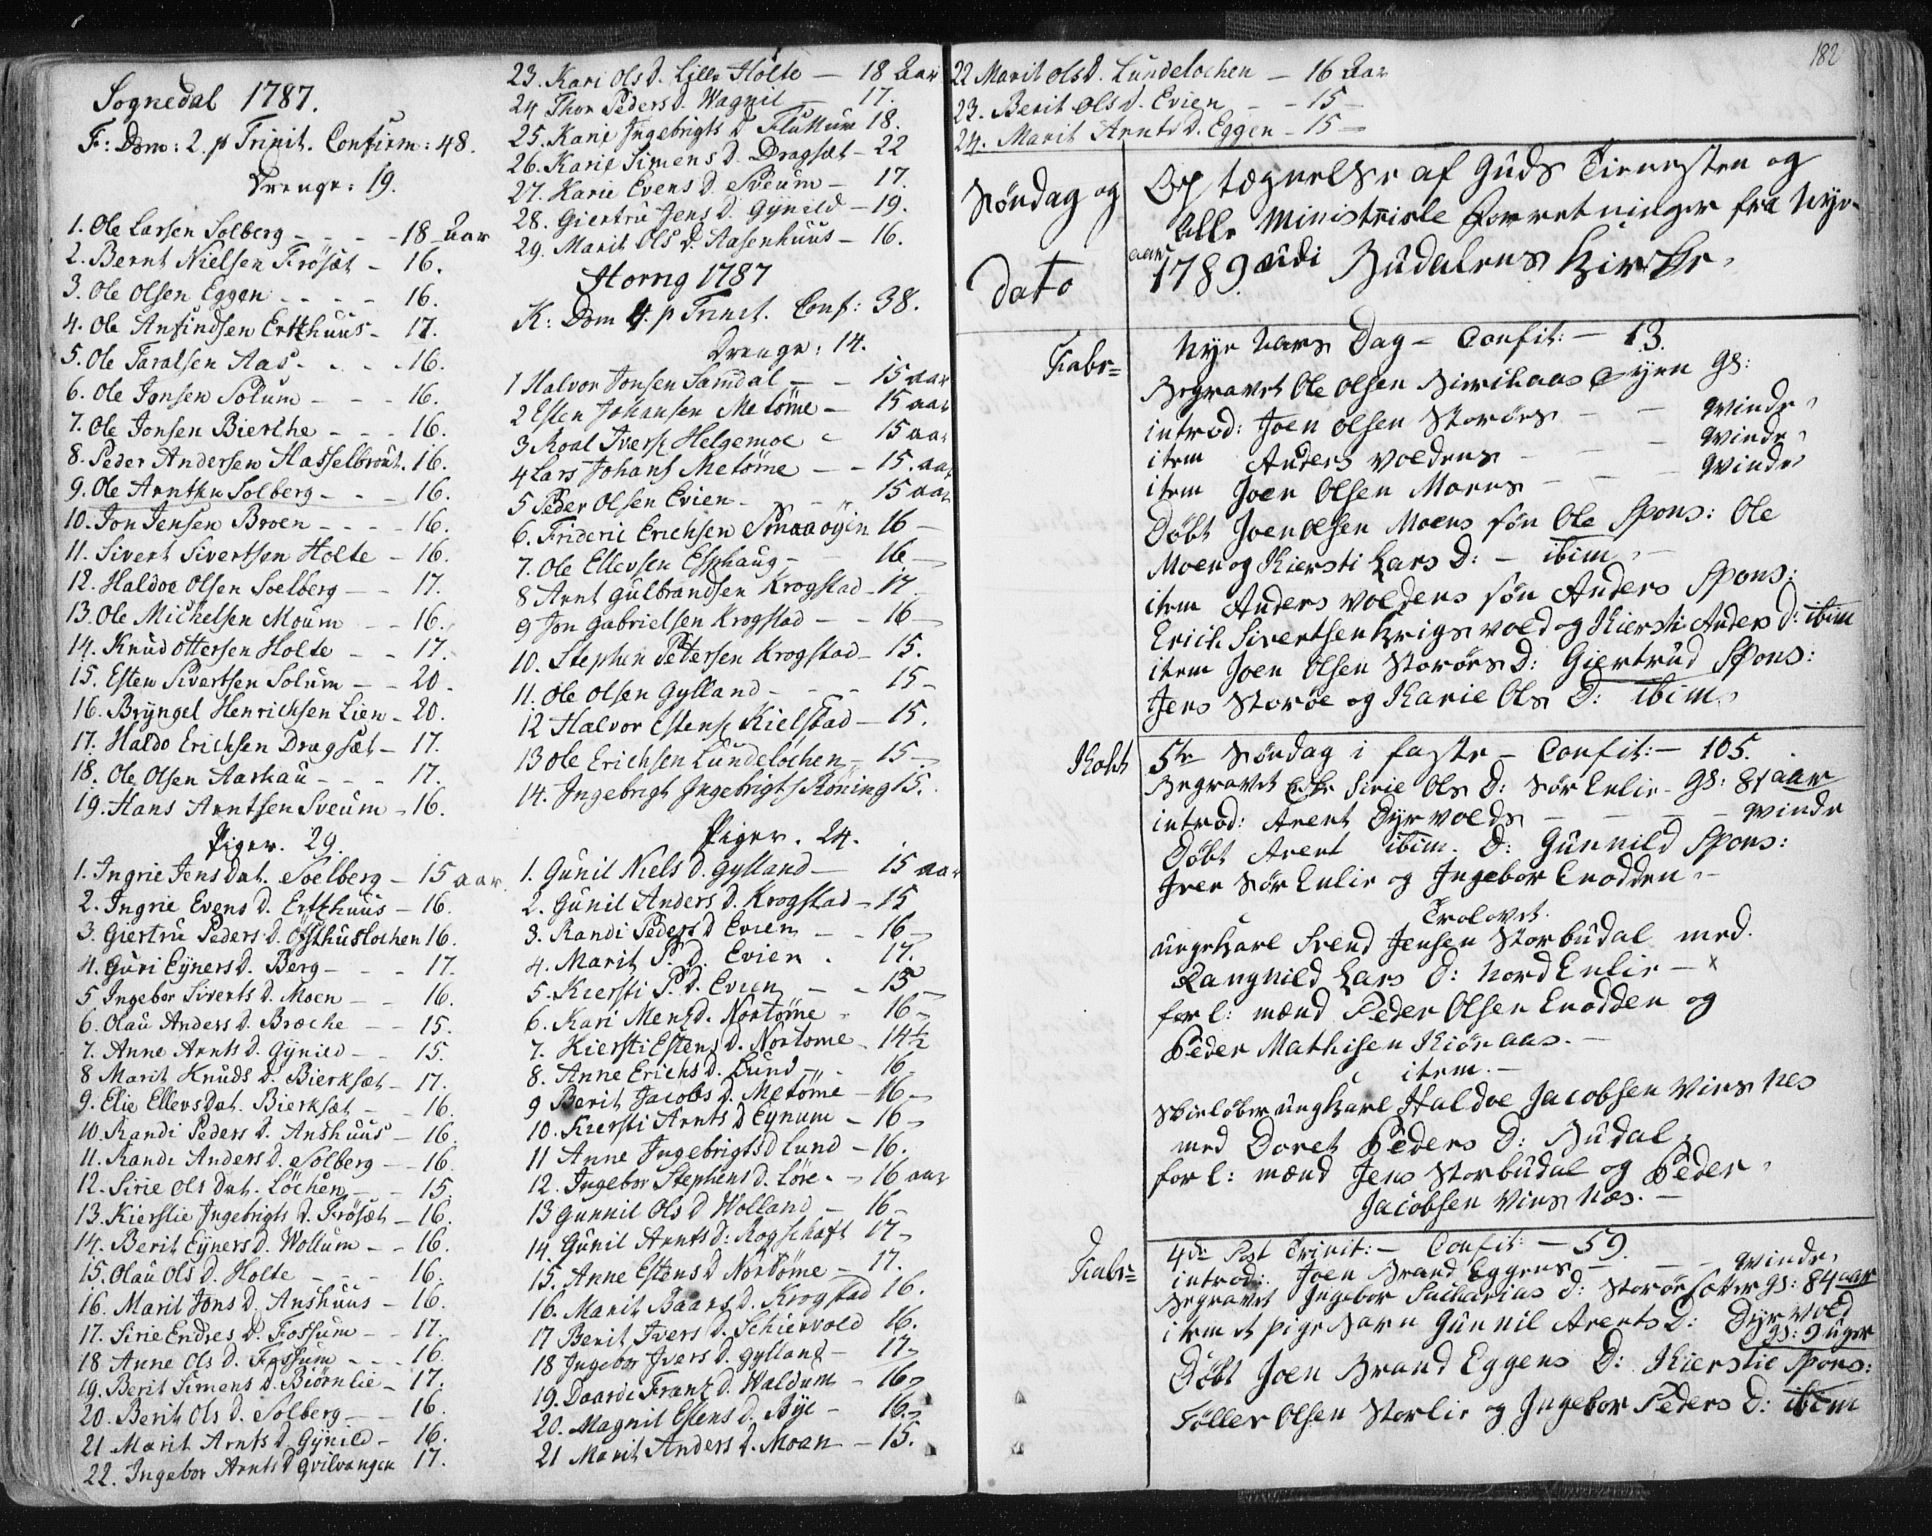 Sognedal 1787.
F: Dom: 2. p Trinit. Confirm: 48.
Drenge: 19.
1. Ole Larsen Solberg - - - - 18 Aar
2. Bernt Nielsen Frösæt - 16.
3. Ole Olsen Eggen - - - - 16.
4. Ole Anfindsen Ertzhuus - 17.
5. Ole Taralsen Aas - - - 16.
6. Ole Jonsen Solum - - - 16.
7. Ole Jonsen Bierche - - - 16.
8. Peder Andersen Hasselbrout. 16.
9. Ole Arntsen Solberg - - - 16.
10. Jon Jensen Broen - - - - 16.
11. Sivert Sivertsen Holte - 16.
12. Haldoe Olsen Soelberg - - 17.
13. Ole Michelsen Moum - - 16.
14. Knud Ottersen Holte - - 17.
15. Esten Sivertsen Solum - - 20.
16. Bryngel Henrichsen Lien - 20.
17. Haldo Erichsen Dragsæt - 17.
18. Ole Olsen Aashau - - - 17.
19. Hans Arntsen Sveum - 16.
Piger. 29.
1. Ingrie Jens Dat. Soelberg - 15 aar.
2. Ingrie Evens D. Ertzhuus - 16.
3. Giertru Peders D. Østhuslochen 16.
4. Guri Eyners D. Berg - - - 17.
5 Ingebor Siverts D. Moen - - 16.
6. Olau Anders D. Bræche - - 15.
7. Anne Arnts D. Gynild - - 15.
8 Marit Knuds D. Bierksæt - 17.
9. Elie Ellevs Dat. Bierksæt - - 16.
10. Randi Peders D. Anshuus - 16.
11. Randi Anders D. Solberg - - 16.
12. Sirie Ols Dat. Löchen - - 15.
13. Kierstie Ingebrigts D. Frösæt - 16.
14. Berit Eyners D. Wollum - - 16.
15. Olau Ols D. Holte - - - 16.
16. Marit Jons D. Anshuus - 16.
17. Sirie Endres D. Fossum - - 17.
18 Anne Ols D. Fossum - - - 16.
19. Berit Simens D. Biörnlie - 17.
20. Berit Ols D. Solberg - - 16.
21 Marit Arnts D. Gynild - 16.
22. Ingebor Arnts D Qvilvangen 17.
23. Kari Ols D. Lille Holte - 18 Aar
24 Thor Peders D. Wagnil - 17.
25. Kari Ingebrigts D Fluttum 18.
26. Karie Simens D. Dragsæt - 22
27. Karie Evens D. Sveum - 17.
28. Giertru Jens D. Gynild - 19.
29. Marit Ols D. Aasenhuus - 16.
Horng 1787
K: Dom 4. p Trinit. Conf: 38.
Drenge: 14.
1 Halvor Jonsen Samdal - - 15 aar
2 Esten Johansen Metöme - 15 aar
3 Roal Ivers: Helgemoe - 15 aar
4 Lars Johans Metöme - - 15. aar
5 Peder Olsen Evien - - - 15 aar
6. Frideric Erichsen Smaaöyen 16 -
7. Ole Ellevsen Esphaug - 16 -
8 Arnt Gulbrandsen Krogstad - 17 -
9 Jon Gabrielsen Krogstad - - 16 -
10. Stephen Petersen Krogstad - 15.
11. Ole Olsen Gylland - - - 15 -
12 Halvor Estens: Kielstad - 15.
13 Ole Erichsen Lundelochen - 15 -
14. Ingebrigt Ingebrigts Röning 15.
Piger. 24.
1. Gunil Niels D. Gylland - 15 aar
2. Gunil Anders D. Krogstad - 15
3. Randi Peders D Evien - - 16 -
4. Marit P. D. Evien . 17.
5. Kiersti P. D. Evien - - 15 -
6. Kari Mens D. Nortöme - 16 -
7. Kiersti Estens D. Nortome - 14½
8. Anne Erichs D. Lund - - 16
9 Berit Jacobs D. Metöme - 16 -
10. Kiersti Arnts D Eynum - 16 -
11 Anne Ingebrigts D Lund - 16.
12. Ingebor Stephens D. Löre - - 16 aar
13 Gunnil Ols D Wolland - 16 -
14. Gunil Arnts D: Rogschaft 17 -
15. Anne Estens D Nortöme - 17.
16. Marit Baars D. Krogstad 16.
17 Berit Ivers D. Schiervold 16.
18 Ingebor Ivers D. Gylland - 17 -
19. Daardi Frantz D. Waldum - 16 -
20. Magnil Estens D. Bye - 16 -
21 Marit Anders D. Moan - 15.
182
22 Marit Ols D. Lundelochen - 16 Aar
23. Berit Ols D. Evien - - 15 -
24. Marit Arnts D. Eggen - 15 -
Søndag og
Dato
Optægnelse af Guds Tienesten og
Alle Ministrielle Forretninger fra Nye-
aar 1789 udi Budalens Kirke.
Fabr=
Nye Aars Dag - Confit: - 13.
Begravet Ole Olsen Birchaas Eyen gs:
introd: Joen Olsen Storøes - - qvinde
item Anders Voldens - - qvinde
item Joen Olsen Moens - - qvinde
Døbt Joen Olsen Moens søn Ole Spons: Ole
Moen og Kiersti Lars D: - ibim -
item Anders Voldens søn Anders Spons:
Erich Sivertsen Krigsvold og Kiersti Anders D: ibim
item Joen Olsen Storøes D: Giertrud Spons:
Jens Storøe og Karie Ols D: ibim.
Kokk
5te Søndag i faste - Confit: - 105.
Begravet Enke Sirie Ols D: Sør Enlie - gs: 81 aar
introd: Arent Dyrvolds - - - - qvinde
Døbt Arent ibim. D: Gunnild Spons:
Iver Sør Enlie og Ingebor Enodden -
Trolovet.
ungekarl Svend Jensen Storbudal med
Rangnild Lars D: Nord Enlie - x
forl: mænd Peder Olsen Enodden og
Peder Mathisen Kiønaas. -
item. -
Skieløber ungkarl Haldoe Jacobsen Vins Nes
med Doret Peders D: Budal
forl: mænd Jens Storbudal og Peder
Jacobsen Vins Næs. -
Fabr=
4de Post Trinit: - Confit: - 59.
introd: Joen Brand Eggens - - - qvinde,
Begravet Ingebor Sacharias D: Storøesæter gs: 84 aar
item et pige Barn Gunnil Arents D: Dyrvold
gs: 9 uger
Døbt Joen Brand Eggens D: Kierstie Spons:
Føller Olsen Storlie og Ingebor Peders D: ibim